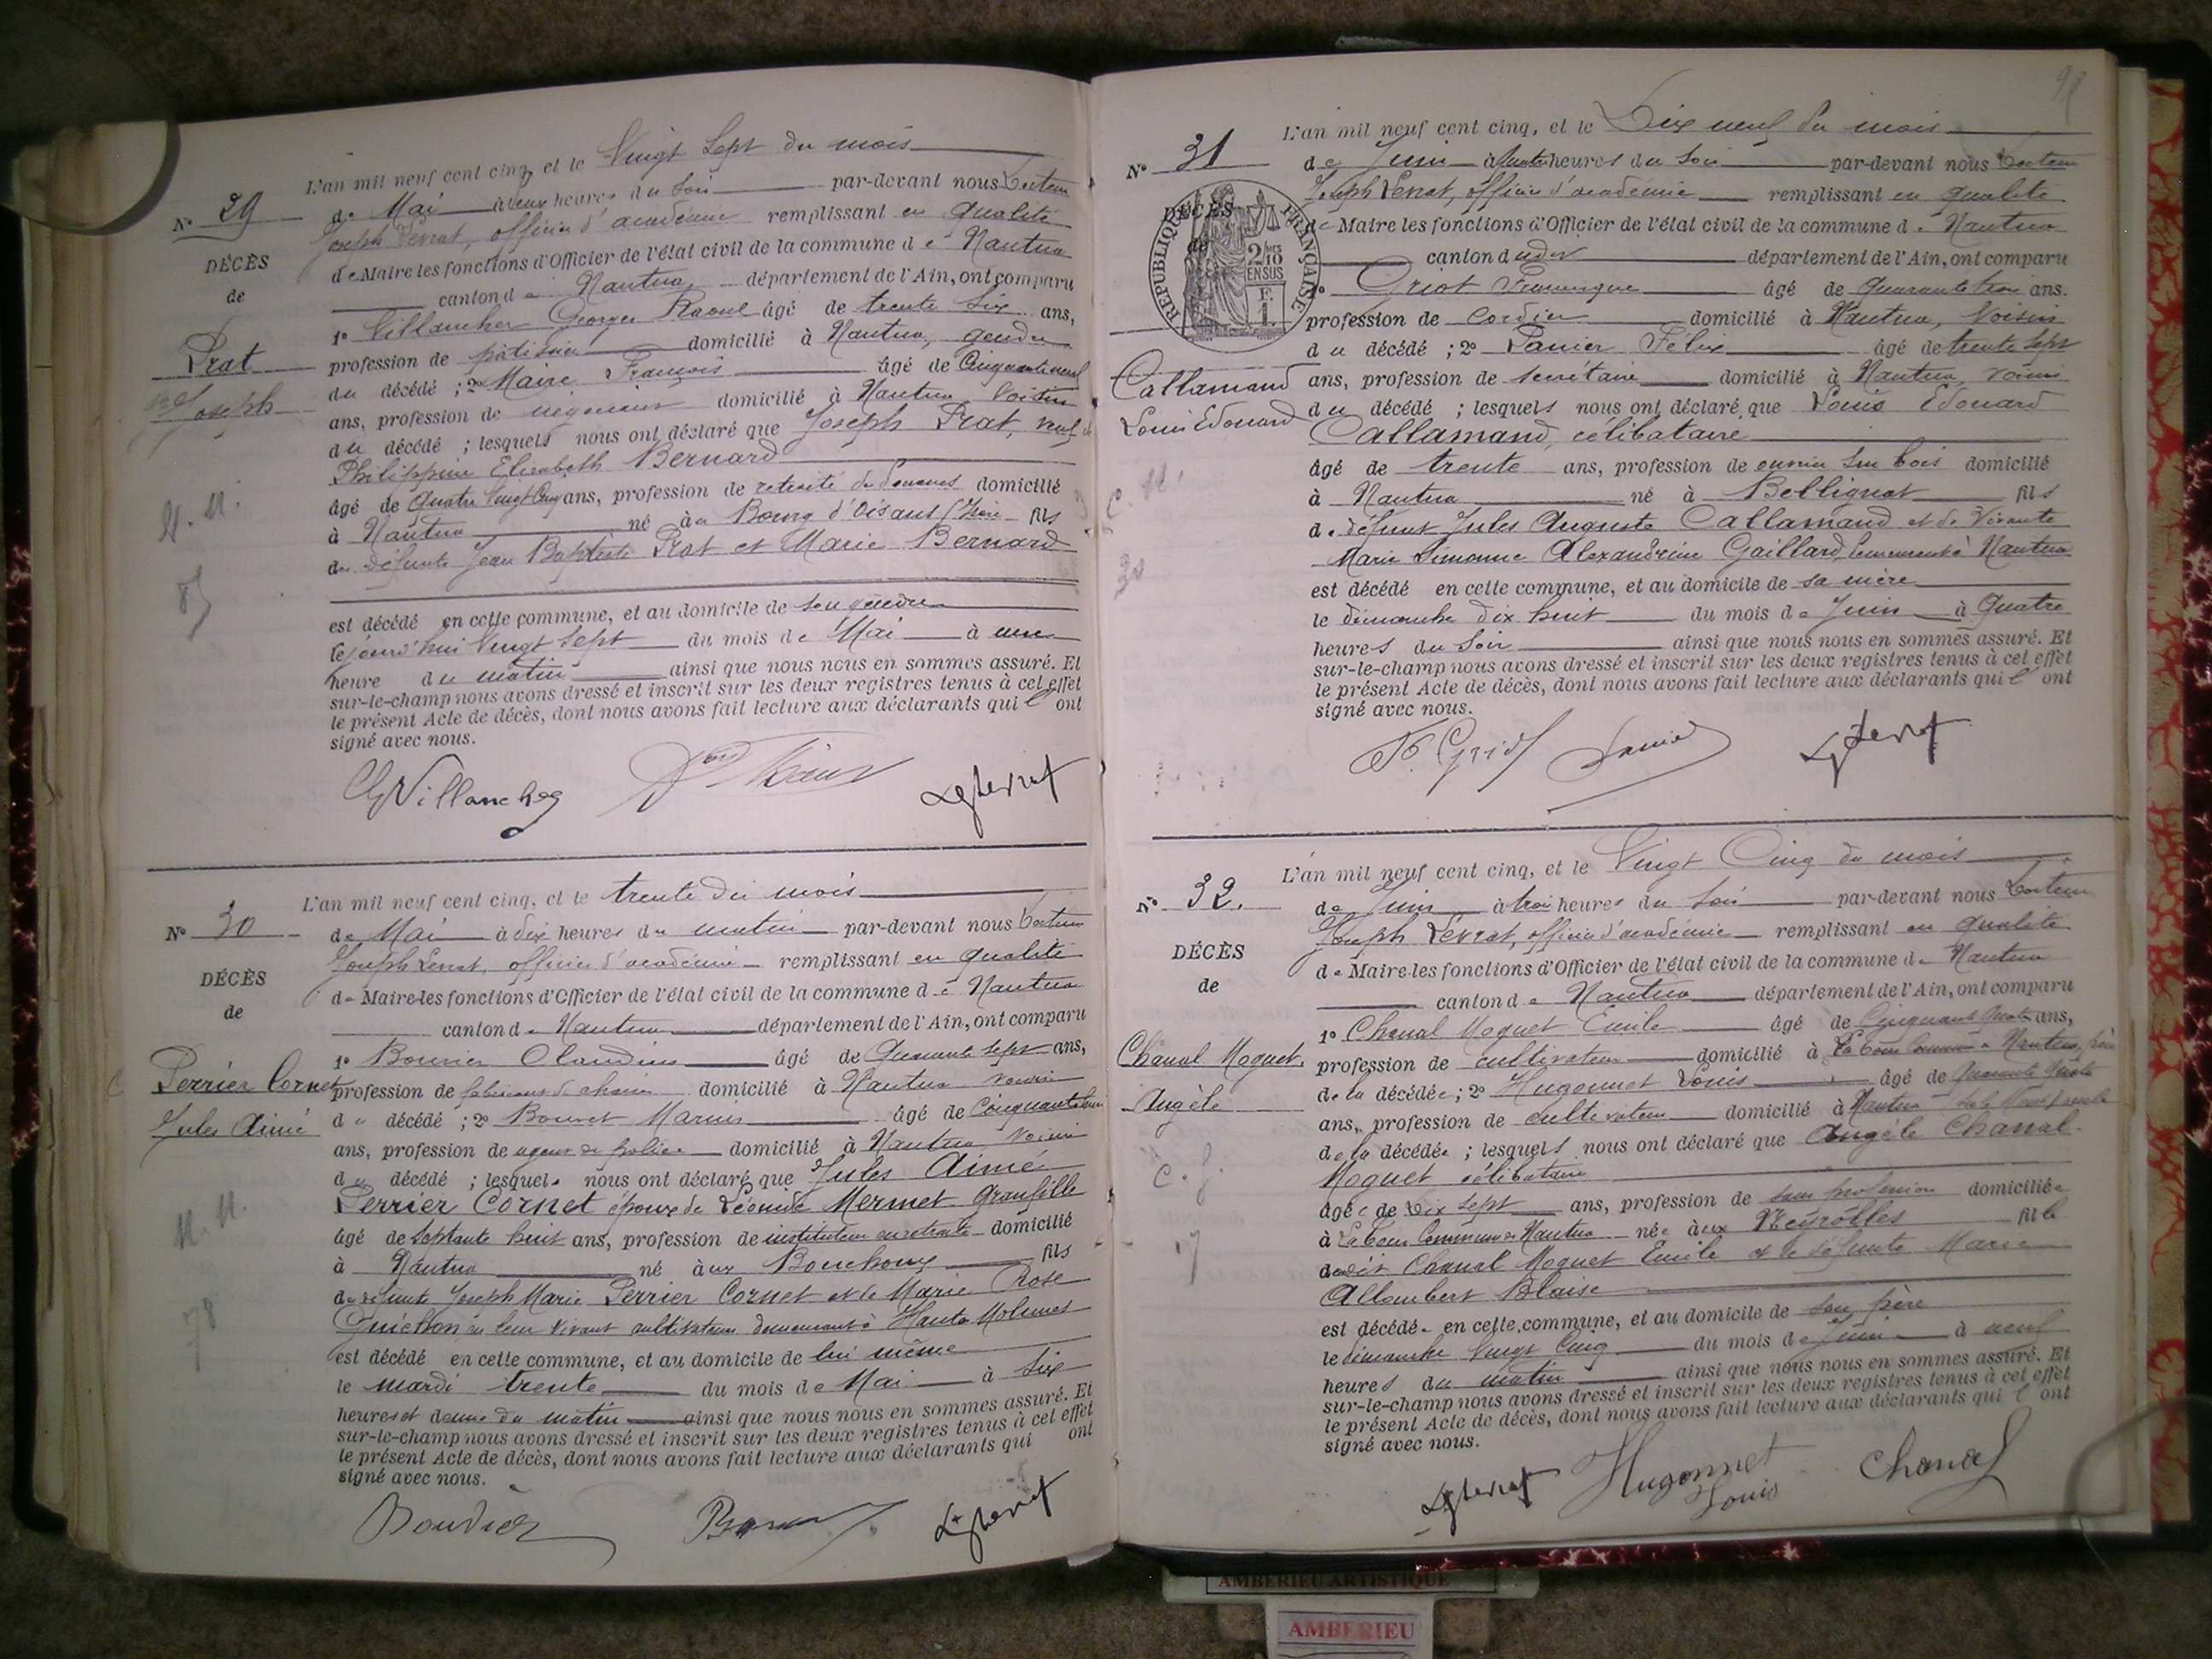 L'an mil neuf cent cinq, et le Vingt Sept du mois
Nº 29
de Mai à deux heures du Soir par-devant nous Docteur
Joseph Levrat, officier d'académie remplissant en qualité
DÉCÈS
de Maire les fonctions d'Officier de l'état civil de la commune de Nantua
de
canton de Nantua département de l'Ain, ont comparu
1º Villancher Georges Raoul âgé de trente Six ans,
Prat
profession de pâtissier domicilié à Nantua, gendre
Joseph
du décédé ; 2º Maire François âgé de Cinquante neuf
ans, profession de négociant domicilié à Nantua Voisin
du décédé ; lesquels nous ont déclaré que Joseph Prat, veuf de
Philippine Elisabeth Bernard
âgé de Quatre Vingt Cinq ans, profession de retraité de douanes domicilié
à Nantua né au Bourg d'Oisans (Isère fils
de défunts Jean Baptiste Prat et Marie Bernard
est décédé en cette commune, et au domicile de son gendre
lejourd'hui Vingt Sept du mois de Mai à une
heure du matin ainsi que nous nous en sommes assuré. Et
sur-le-champ nous avons dressé et inscrit sur les deux registres tenus à cet effet
le présent Acte de décès, dont nous avons fait lecture aux déclarants qui l' ont
signé avec nous.
G Villancher
L'an mil neuf cent cinq, et le trente du mois
Nº 30
de Mai à dix heures du matin par-devant nous Docteur
Joseph Levrat, officier d'académie remplissant en qualité
DÉCÈS
de Maire les fonctions d'Officier de l'état civil de la commune de Nantua
de
canton de Nantua département de l'Ain, ont comparu
1º Bouvier Claudius âgé de Quarante Sept ans,
Perrier Cornet
profession de fabricant de chaises domicilié à Nantua voisin
Jules Aimé
du décédé ; 2º Bouvet Marius âgé de Cinquante
ans, profession de agent de police domicilié à Nantua Voisin
du décédé ; lesquels nous ont déclaré que Jules Aimé
Perrier Cornet époux de Léonide Mermet Grandfille
âgé de Septante huit ans, profession de instituteur en retraite domicilié
à Nantua né aux Bouchoux fils
de défunts Joseph Marie Perrier Cornet et de Marie Rose
Guichon en leur vivant cultivateurs demeurant à Haute Molunes
est décédé en cette commune, et au domicile de lui même
le mardi trente du mois de Mai à Six
heures et demie du matin ainsi que nous nous en sommes assuré. Et
sur-le-champ nous avons dressé et inscrit sur les deux registres tenus à cet effet
le présent Acte de décès, dont nous avons fait lecture aux déclarants qui ont
signé avec nous.
78
L'an mil neuf cent cinq, et le Dix neuf du mois
Nº 31
de Juin à quatre heures du Soir par-devant nous Docteur
Joseph Levrat, officier d'académie remplissant en qualité
DÉCÈS
de
RÉPUBLIQUE FRANÇAISE
2/10 EN SUS
de Maire les fonctions d'Officier de l'état civil de la commune de Nantua
canton dudit département de l'Ain, ont comparu
1º Griot Francisque âgé de Quarante trois ans.
profession de cordier domicilié à Nantua, Voisin
du décédé ; 2º Panier Félix âgé de trente Sept
Callamand
ans, profession de secrétaire domicilié à Nantua, voisin
Louis Edouard
du décédé ; lesquels nous ont déclaré que Louis Edouard
Callamand, célibataire
âgé de trente ans, profession de ouvrier sur bois domicilié
à Nantua né à Bellignat fils
de défunt Jules Auguste Callamand et de Vivante
Marie Simonne Alexandrine Gaillard, demeurant à Nantua
est décédé en cette commune, et au domicile de sa mère
le dimanche dix huit du mois de Juin à Quatre
heures du Soir ainsi que nous nous en sommes assuré. Et
sur-le-champ nous avons dressé et inscrit sur les deux registres tenus à cet effet
le présent Acte de décès, dont nous avons fait lecture aux déclarants qui l' ont
signé avec nous.
30
L'an mil neuf cent cinq, et le Vingt Cinq du mois
Nº 32.
de Juin à trois heures du Soir par-devant nous Docteur
Joseph Levrat, officier d'académie remplissant en qualité
DÉCÈS
de Maire les fonctions d'Officier de l'état civil de la commune de Nantua
de
canton de Nantua département de l'Ain, ont comparu
1º Chanal Moguet Emile âgé de Cinquante Quatre ans,
Chanal Moguet
profession de cultivateur domicilié à commune de Nantua, père
Angèle
de la décédée ; 2º Hugonnet Louis âgé de Quarante Quatre
ans, profession de cultivateur domicilié à Nantua
de la décédée ; lesquels nous ont déclaré que Angèle Chanal
Moguet célibataire
âgée de Dix Sept ans, profession de sans profession domiciliée
à Commune de Nantua née aux Neyrolles fille
dudit Chanal Moguet Emile et de défunte Marie
Allombert Blaise
est décédée en cette commune, et au domicile de son père
le dimanche Vingt Cinq du mois de Juin à neuf
heures du matin ainsi que nous nous en sommes assuré. Et
sur-le-champ nous avons dressé et inscrit sur les deux registres tenus à cet effet
le présent Acte de décès, dont nous avons fait lecture aux déclarants qui l' ont
signé avec nous.
17
Hugonnet Louis
Chanal
AMBERIEU ARTISTIQUE
AMBERIEU